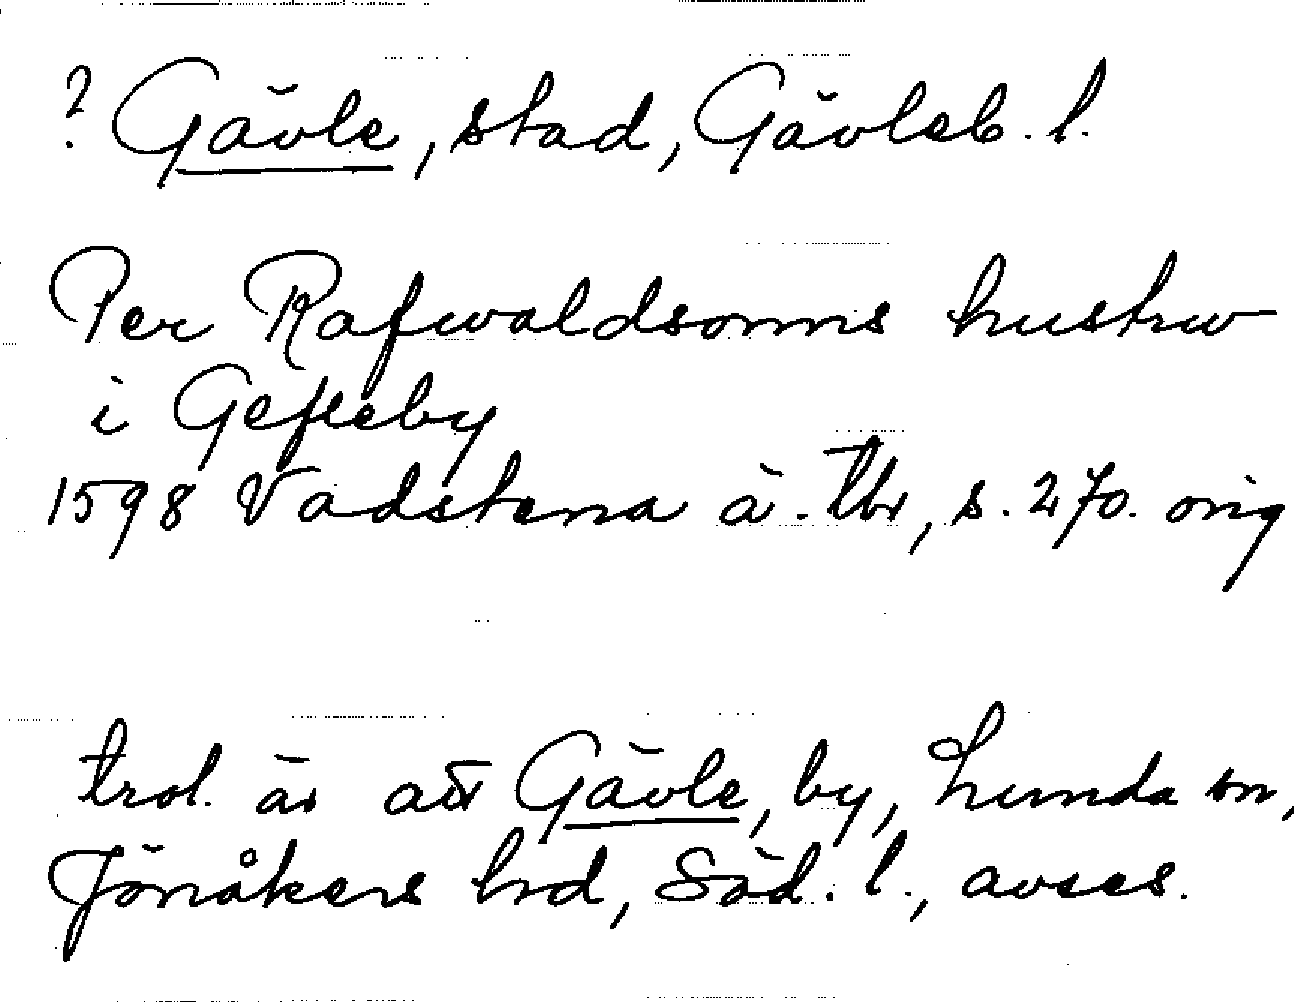 ? Gävle, stad, Gävleb. l.
Per Rafwaldsonns hustrw
i Gefleby
1598 Vadstena ä. tbr, s. 270. orig
trol. är att Gävle, by, Lunda sn,
Jönåkers hrd, Söd. l., avses.